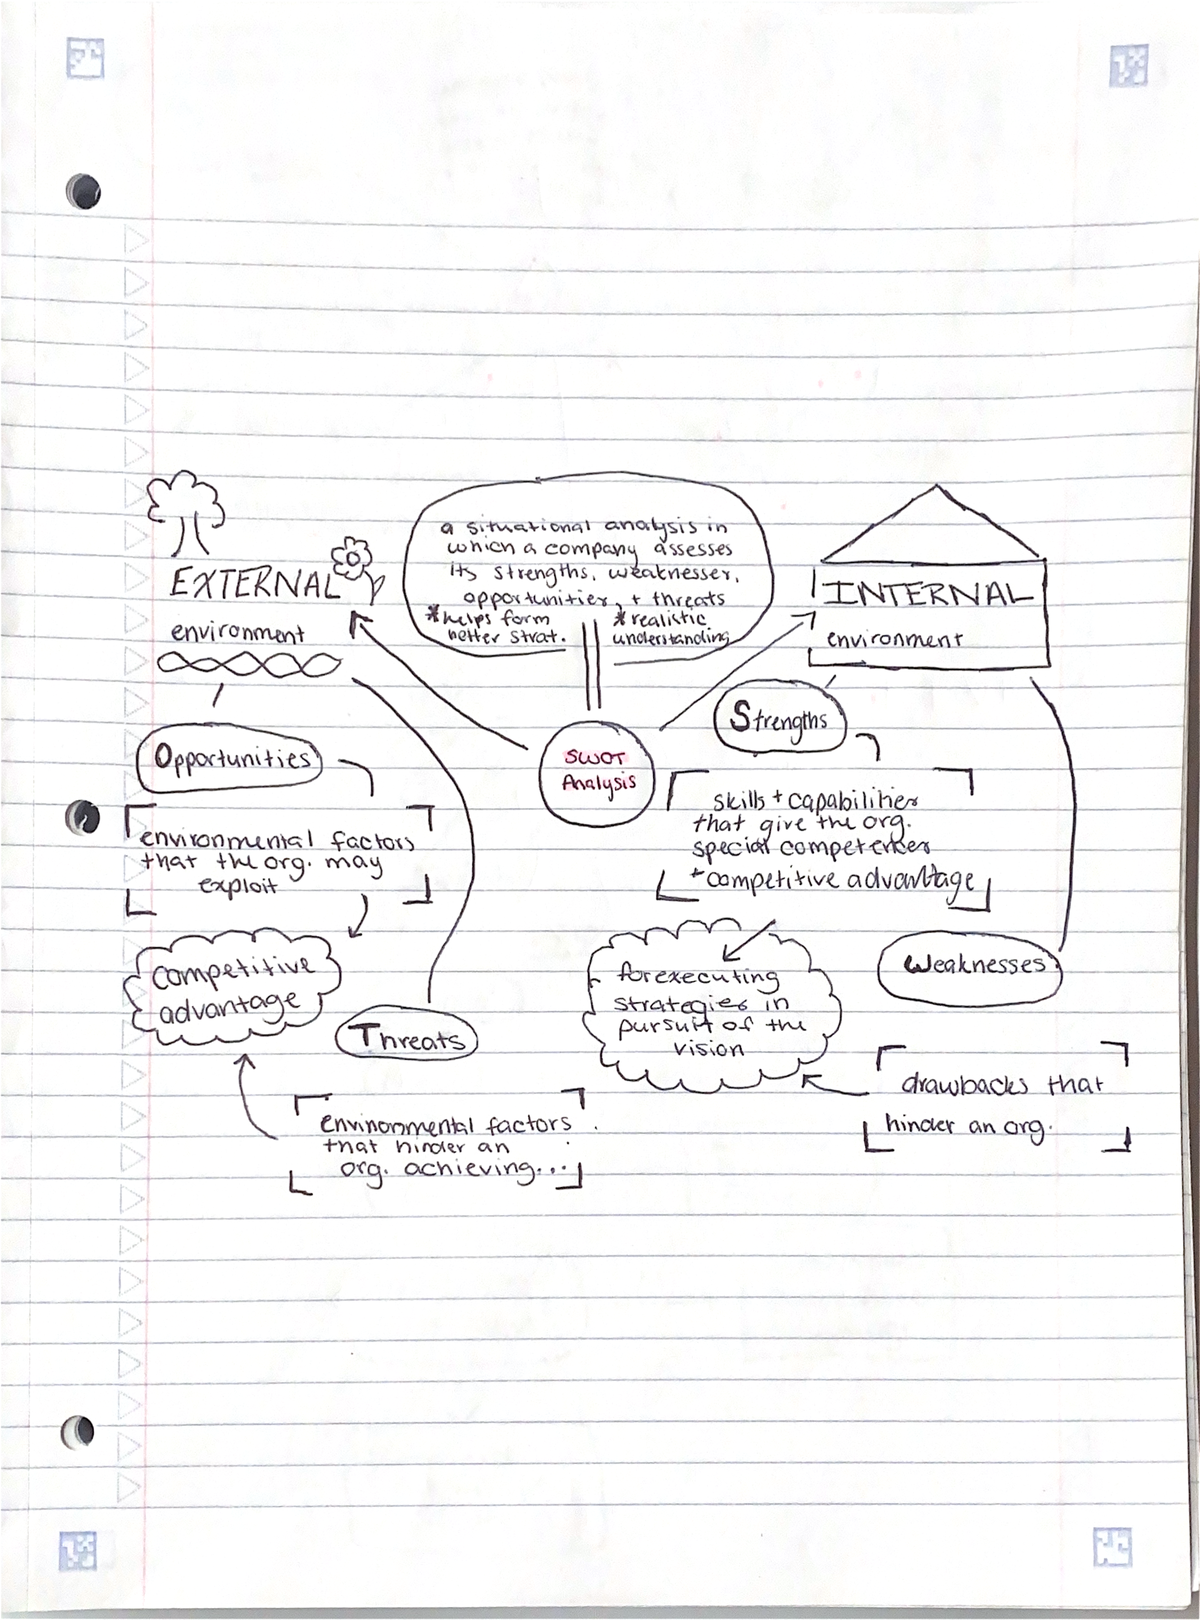 a situational analysis in
which a company assesses
its strengths, weaknesses,
opportunities, + threats
*helps form
better strat.
*realistic
understanding
EXTERNAL
environment
INTERNAL
environment
SWOT
Analysis
Strengths
Opportunities
skills + capabilities
that give the org.
special competences
+ competitive advantage
environmental factors
that the org. may
exploit
competitive
advantage
Threats
for executing
strategies in
pursuit of the
vision
Weaknesses
drawbacks that
hinder an org.
environmental factors
that hinder an
org. achieving...